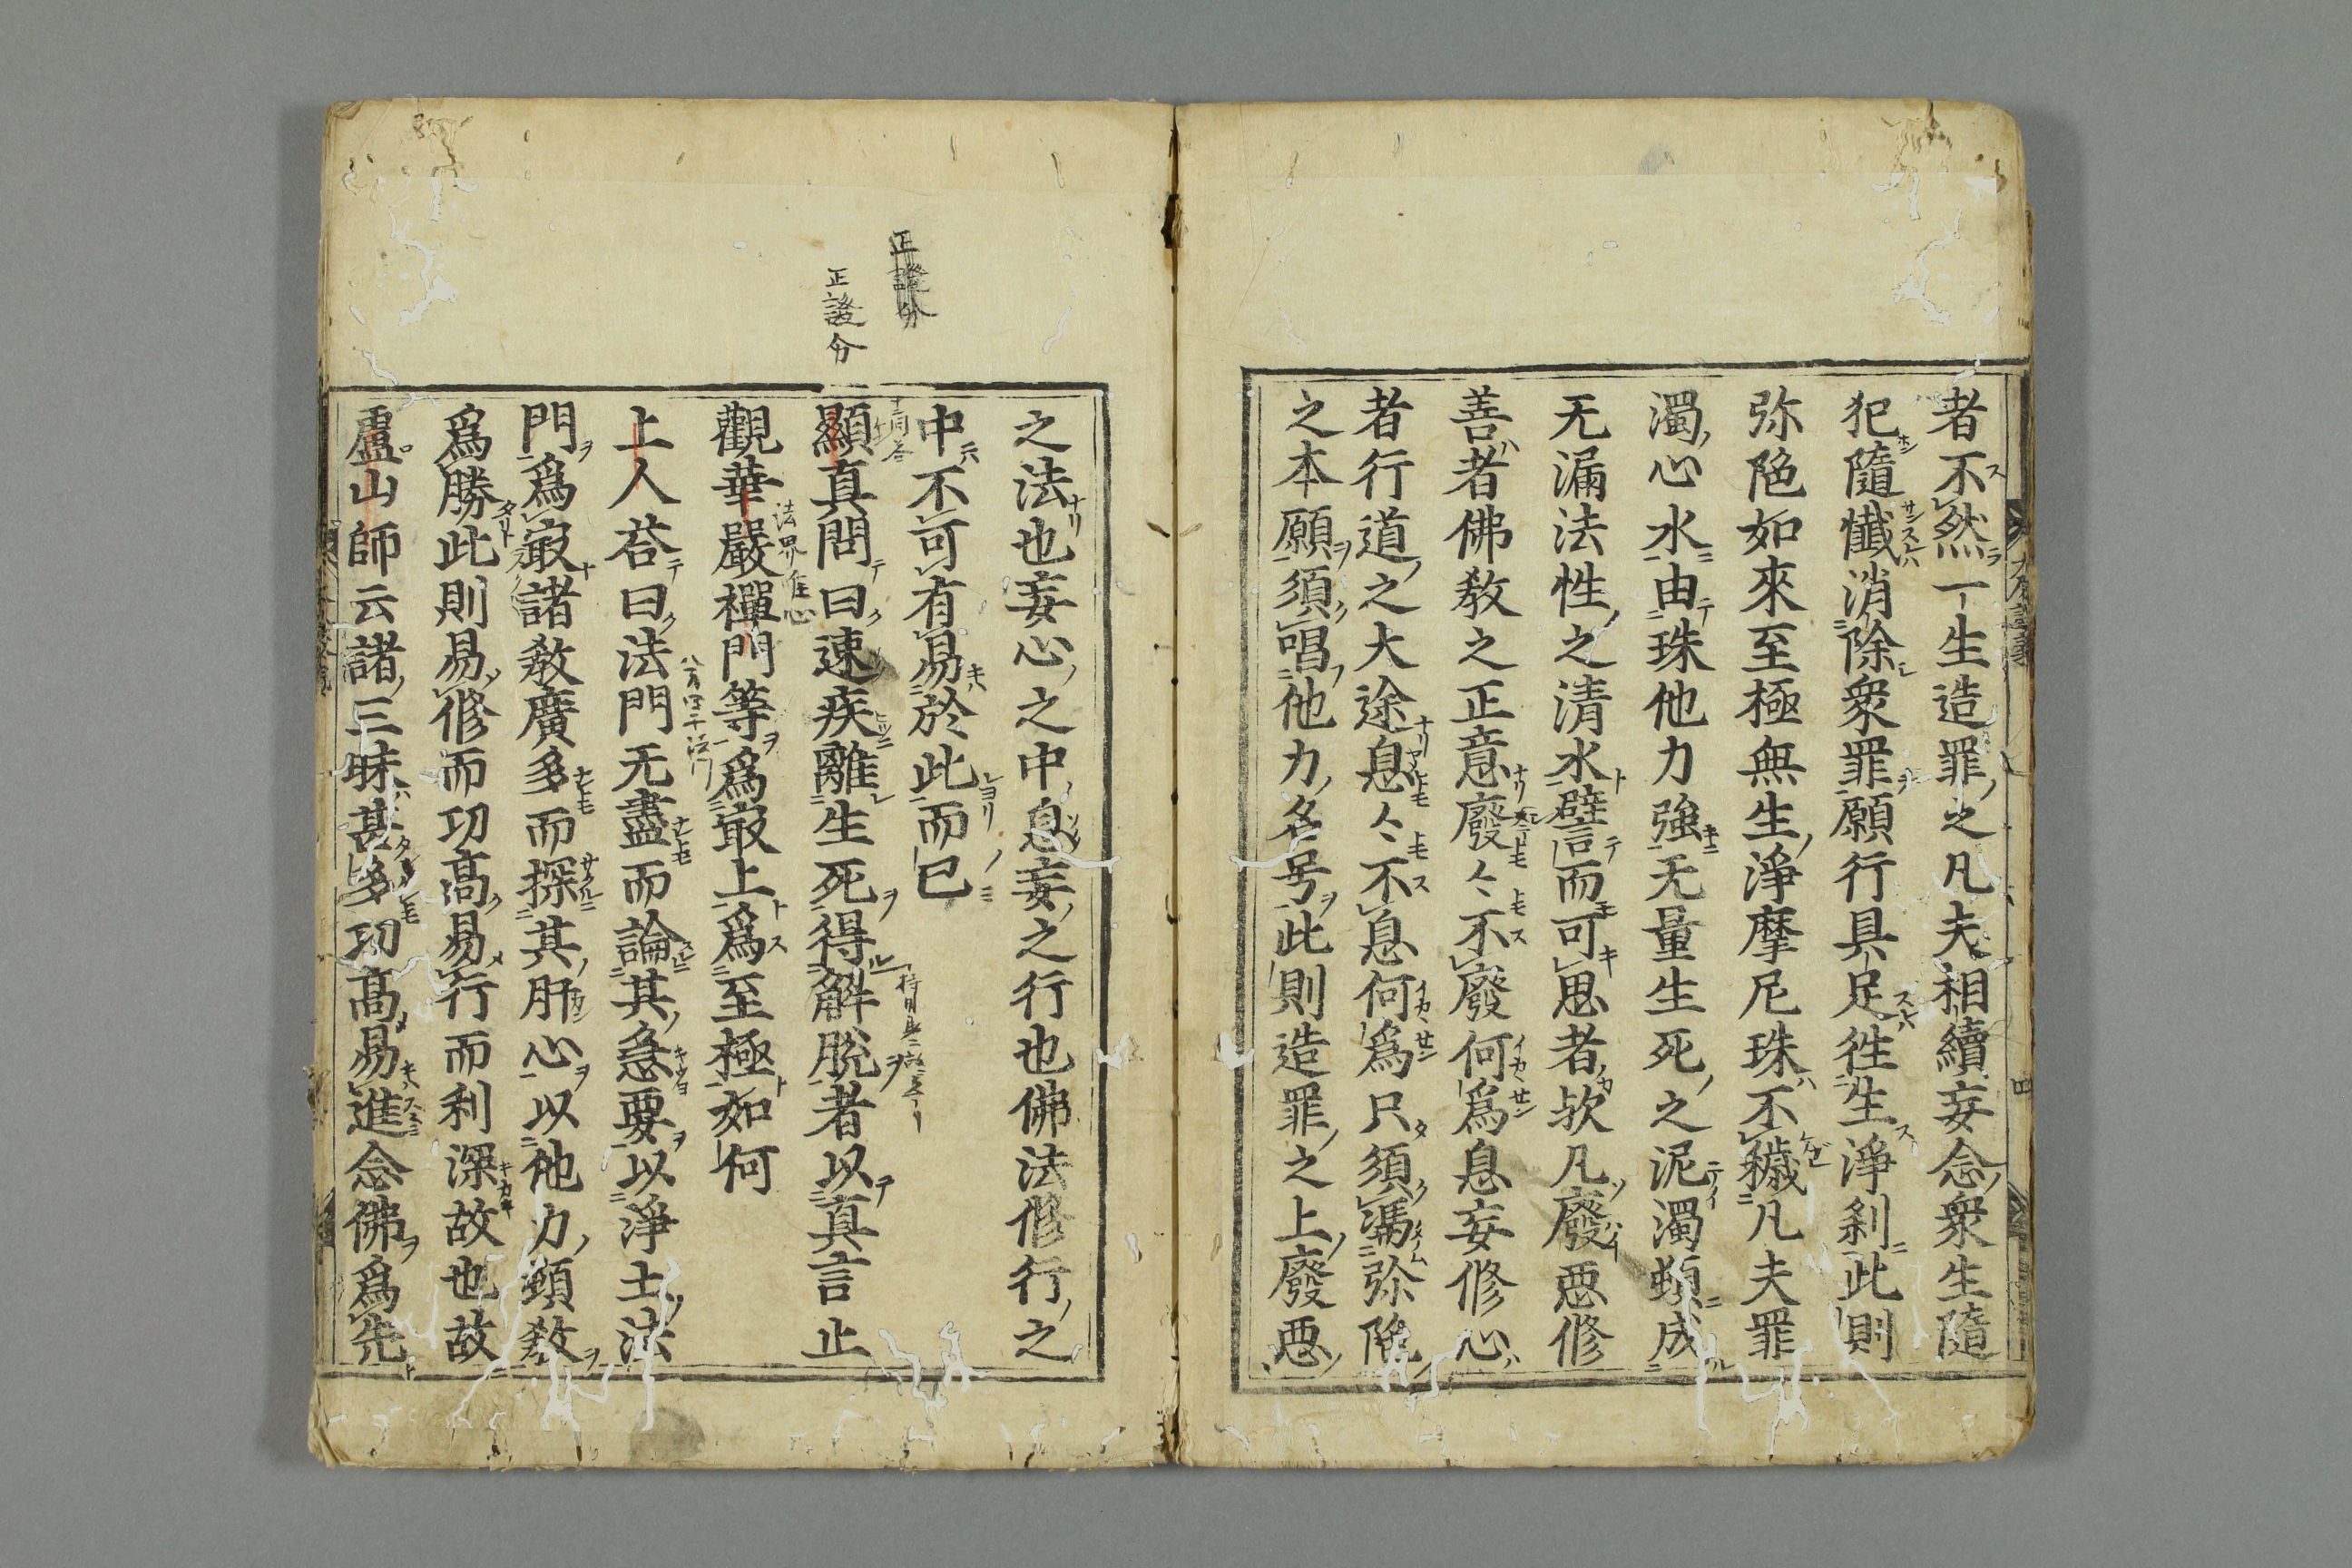 者不然一生造罪之凡夫相續妄念衆生隨
犯隨懺消除衆罪願行具足徃生淨刹此則
弥陁如來至極無生淨摩尼珠不穢凡夫罪
濁心水由珠他力強无量生死之泥濁頓成
无漏法性之清水譬而可思者欤凡廢惡修
善者佛教之正意廢々不廢何爲息妄修心
者行道之大途息々不息何爲只須馮弥陁
之本願須唱他力名号此則造罪之上廢惡
之法也妄心之中息妄之行也佛法修行之
中不可有易於此而已
正證分
正證分
顯真問曰速疾離生死得解脱者以真言止
觀華嚴禪門等爲㝡上爲至極如何
法界唯心
上人荅曰法門无盡而論其急要以淨土法
門爲㝡諸教廣多而探其肝心以他力頓教
爲勝此則易修而功高易行而利深故也故
廬山師云諸三昧甚多功高易進念佛爲先